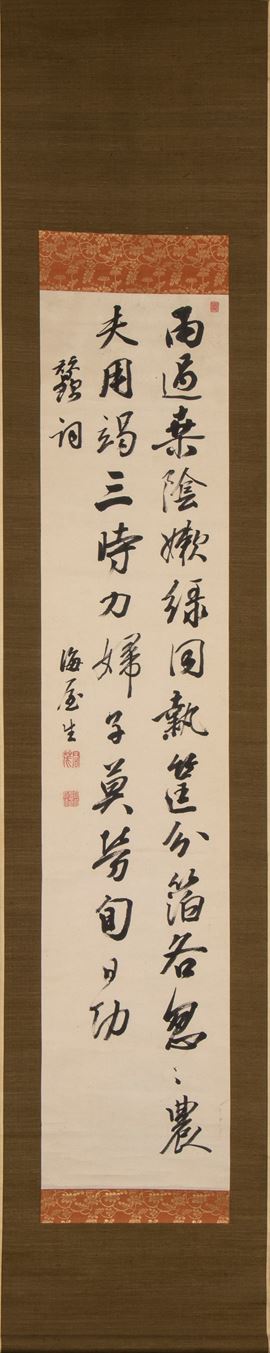 雨過桑陰嫩緑同執筐分箔各怱〻農
夫用竭三時力婦子莫勞旬日功
蠶詞
海屋生